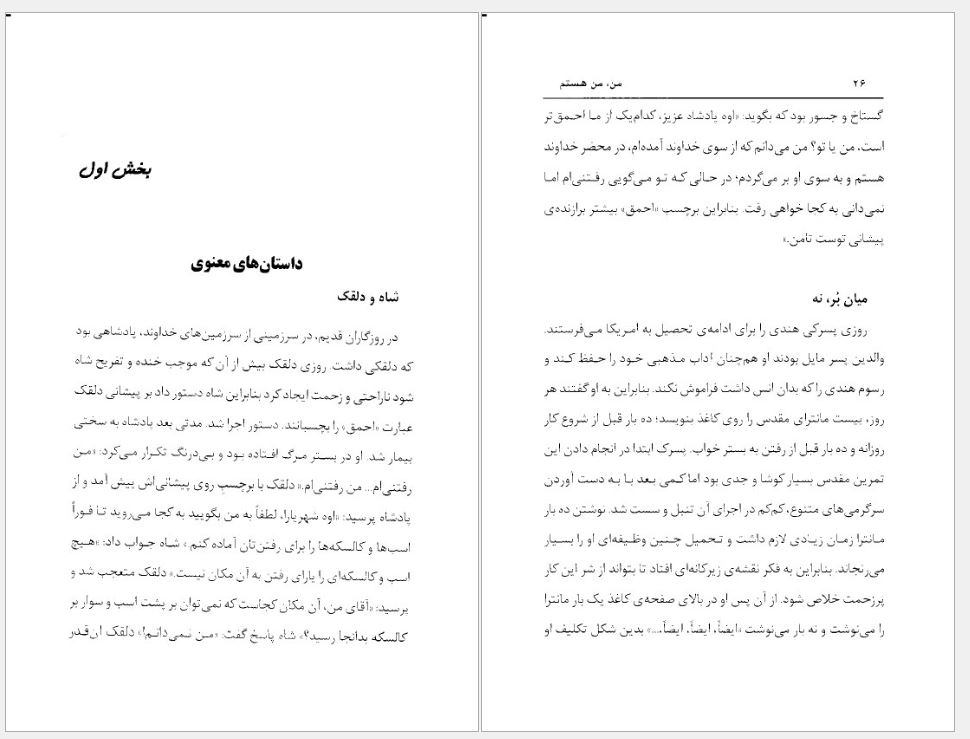 بخش اول
داستان‌های معنوی
شاه و دلقک
در روزگاران قدیم، در سرزمینی از سرزمین‌های خداوند، پادشاهی بود
که دلقکی داشت. روزی دلقک بیش از آن که موجب خنده و تفریح شاه
شود ناراحتی و زحمت ایجاد کرد بنابراین شاه دستور داد بر پیشانی دلقک
عبارت «احمق» را بچسبانند. دستور اجرا شد. مدتی بعد پادشاه به سختی
بیمار شد. او در بستر مرگ افتاده بود و بی‌درنگ تکرار می‌کرد: «من
رفتنی‌ام... من رفتنی‌ام.» دلقک با برچسب روی پیشانی‌اش پیش آمد و از
پادشاه پرسید: «اوه شهریارا، لطفاً به من بگویید به کجا می‌روید تا فوراً
اسب‌ها و کالسکه‌ها را برای رفتن‌تان آماده کنم.» شاه جواب داد: «هیچ
اسب و کالسکه‌ای را یارای رفتن به آن مکان نیست.» دلقک متعجب شد و
پرسید: «آقای من، آن مکان کجاست که نمی‌توان بر پشت اسب و سوار بر
کالسکه بدانجا رسید؟» شاه پاسخ گفت: «من نمی‌دانم!» دلقک آن‌قدر
۲۶ من، من هستم
گستاخ و جسور بود که بگوید: «اوه پادشاه عزیز، کدام‌یک از ما احمق‌تر
است، من یا تو؟ من می‌دانم که از سوی خداوند آمده‌ام، در محضر خداوند
هستم و به سوی او بر می‌گردم؛ در حالی که تو می‌گویی رفتنی‌ام اما
نمی‌دانی به کجا خواهی رفت. بنابراین برچسب «احمق» بیشتر برازنده‌ی
پیشانی توست تامن.»
میان بُر، نه
روزی پسرکی هندی را برای ادامه‌ی تحصیل به امریکا می‌فرستند.
والدین پسر مایل بودند او هم‌چنان آداب مذهبی خود را حفظ کند و
رسوم هندی را که بدان انس داشت فراموش نکند. بنابراین به او گفتند هر
روز، بیست مانترای مقدس را روی کاغذ بنویسد؛ ده بار قبل از شروع کار
روزانه و ده بار قبل از رفتن به بستر خواب. پسرک ابتدا در انجام دادن این
تمرین مقدس بسیار کوشا و جدی بود اما کمی بعد با به دست آوردن
سرگرمی‌های متنوع، کم‌کم در اجرای آن تنبل و سست شد. نوشتن ده بار
مانترا زمان زیادی لازم داشت و تحمیل چنین وظیفه‌ای او را بسیار
می‌رنجاند. بنابراین به فکر نقشه‌ی زیرکانه‌ای افتاد تا بتواند از شر این کار
پرزحمت خلاص شود. از آن پس او در بالای صفحه‌ی کاغذ یک بار مانترا
را می‌نوشت و نه بار می‌نوشت «ایضاً، ایضاً، ایضاً،...» بدین شکل تکلیف او